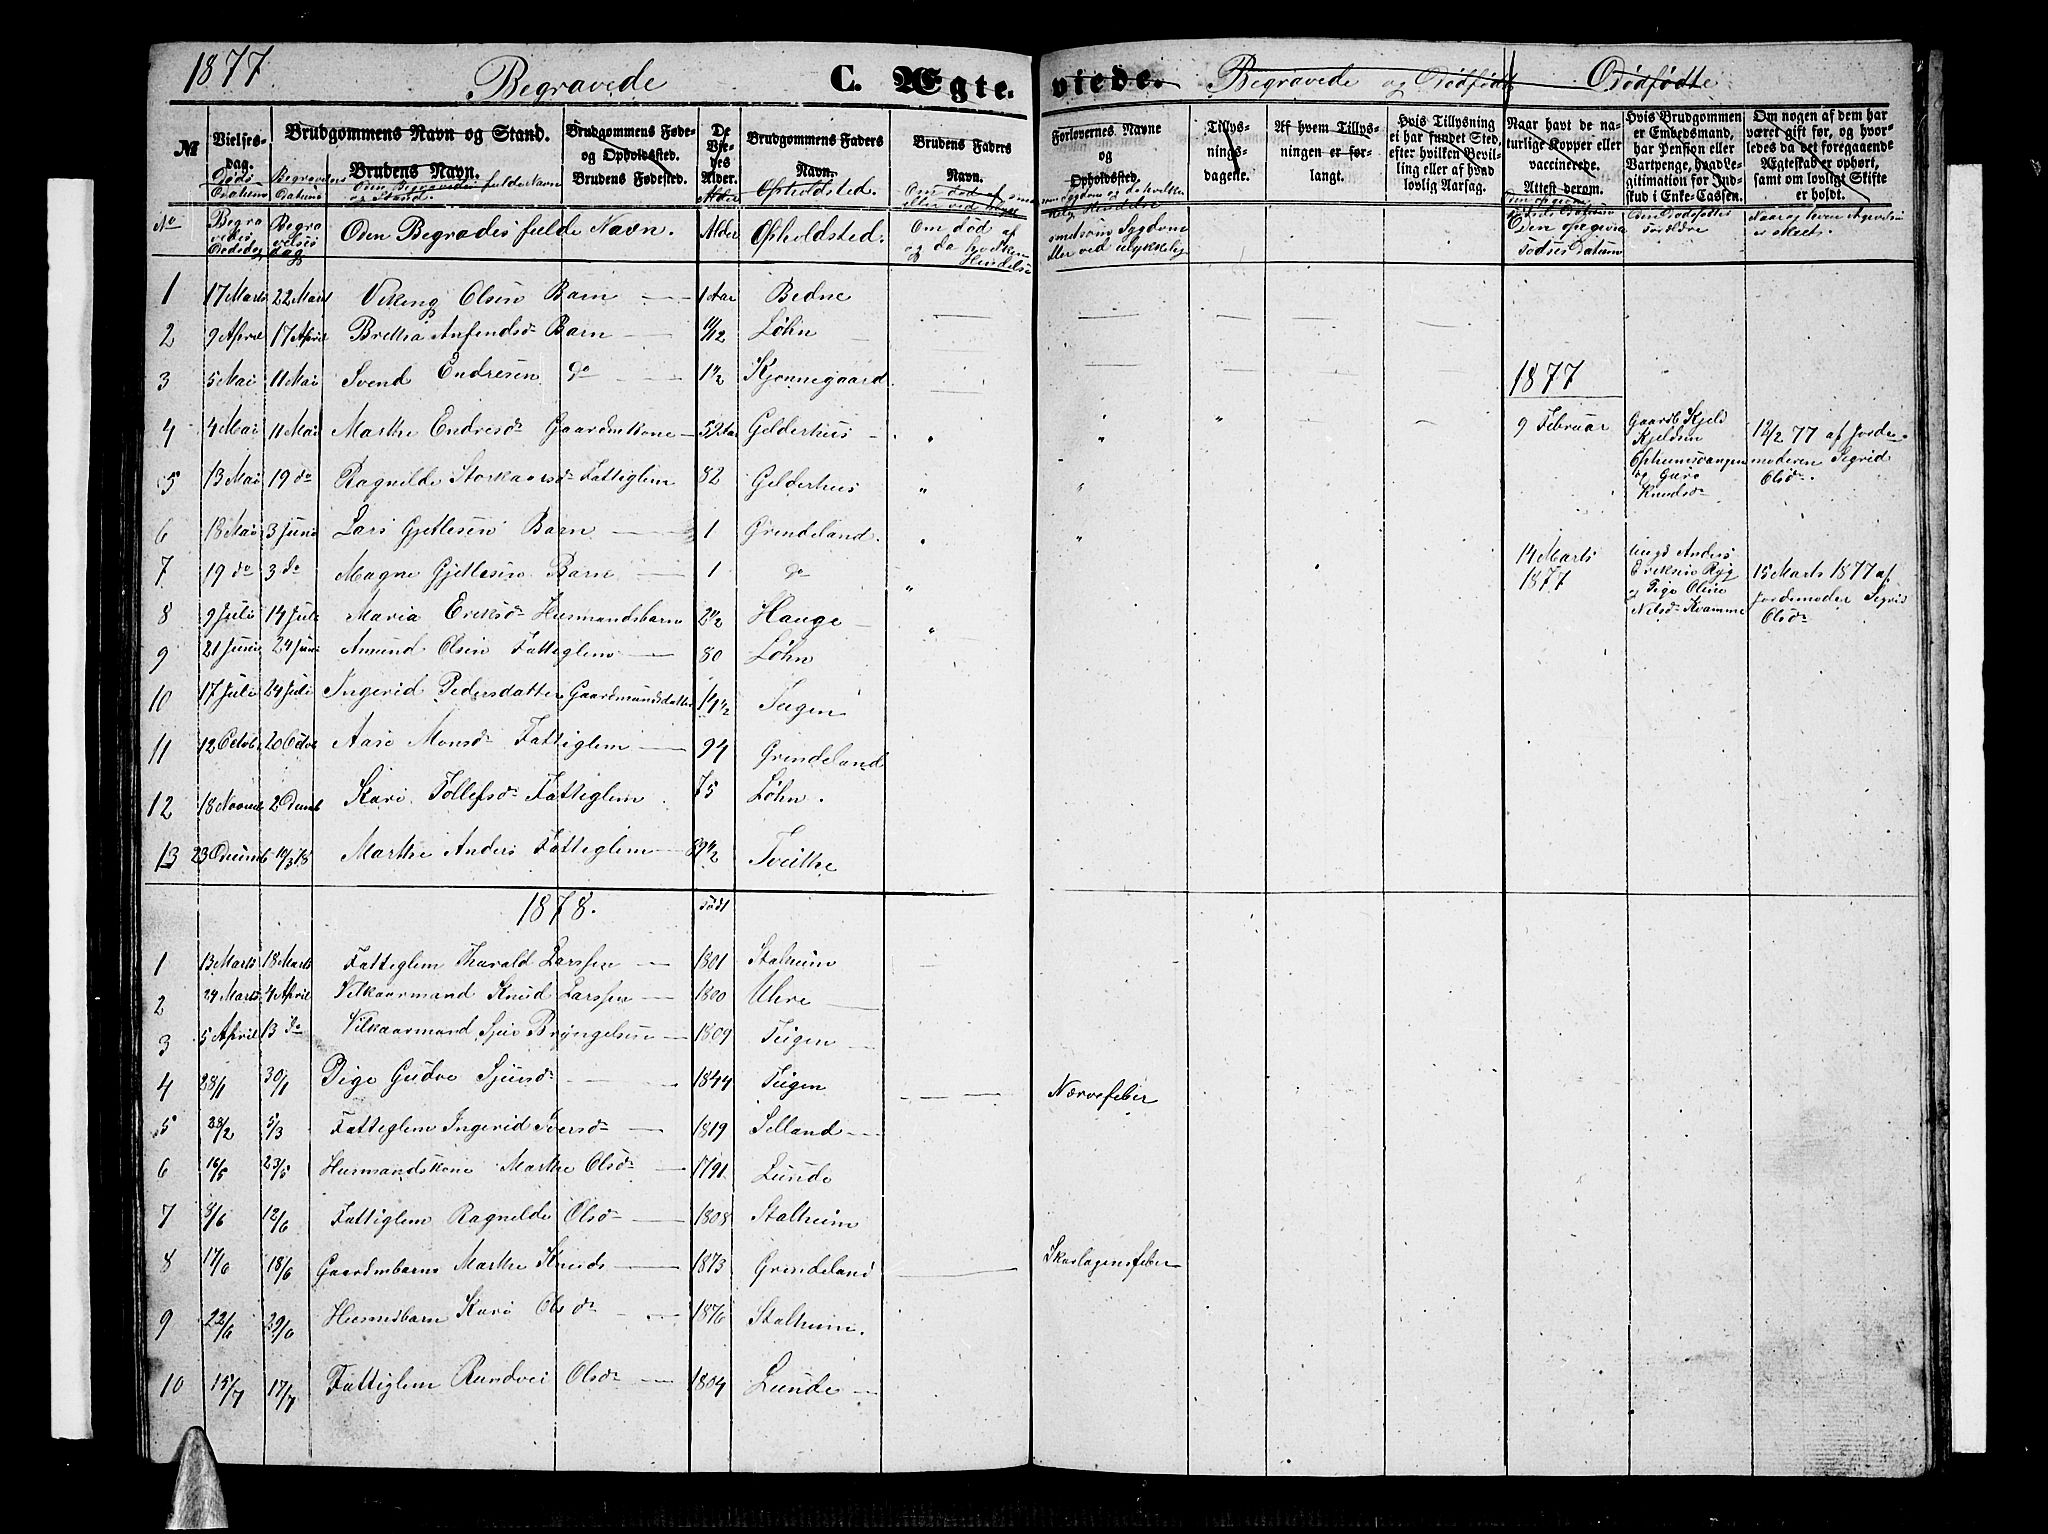 1877
Begravede C. Ægte-
viede. Begravede og Dødfødte Dødfødte
№ Vielses-dag. Brudgommens Navn og Stand. Brudens Navn. Brudgommens Føde- og Opholdssted. Brudens Fødested. De Viedes Alder. Brudgommens Faders Navn. Brudens Faders Navn.
Døds Datum Begravelses Datum Den Begravedes fulde Navn og Stand. Alder Opholdsted. Om død af
Forlovernes Navne og Opholdssted. Tillysningsdagene. Af hvem Tillysningen er forlangt. Hvis Tillysning ei har fundet Sted, efter hvilken Bevilling eller af hvad lovlig Aarsag. Naar havt de naturlige Kopper eller vaccinerede. Attest derom. Hvis Brudgommen er Embedsmand, har Pension eller Vartpenge, hvad Legitimation for Indskud i Enke-Cassen. Om nogen af dem har været gift før, og hvorledes da det foregaaende Ægteskab er ophørt, samt om lovligt Skifte er holdt.
No Begravedes Dødsdag Begravelsesdag Den Begravedes fulde Navn. Alder Opholdsted. Om død af
eller ved ulykkelig Fødsels Datum Den Dødfødtes Forældre
1 17 Marts 22 Marts Viking Olsen Barn 1 Aar Bedne
2 9 April 17 April Brithe Anfindsdr Barn 11/12 Løhn
3 5 Mai 11 Mai Svend Endresen do 1 1/2 Kjønnegaard
1877
4 4 Mai 11 Mai Marthe Endresdr Gaardmkone 52 Aar Gelderhus
9 Februar Gaardb Kjeld Kjeldsen Opheimsvangen og Guro Knudsdr 12/2 77 af Jordemoderen Sigrid Olsdr.
5 13 Mai 19 do Ragnilde Storkaarsdr Fattiglem 82 Gelderhus
6 18 Mai 3 Juni Lars Gjetlesen Barn 1 Grindeland.
7 19 do 3 do Magne Gjetlesen Barn 1 do
14 Marts 1877 Ungk Anders Eriksen Ryg og Pige Oline Nilsdr Kvamme 15 Marts 1877 af Jordemoder Sigrid Olsdr
8 9 Juli 14 Juli Maria Eriksdr Husmandsbarn 2 1/2 Hauge
9 21 Juni 24 Juni Amund Olsen Fattiglem 80 Løhn
10 17 Juli 24 Juli Ingerid Pedersdatter Gaardmandsdatter 14 1/2 Teigen
11 12 Octob 20 Octbr Aase Monsdr Fattiglem 94 Grindeland
12 18 Novemb 2 Decemb Kari Tollefsdr Fattiglem 75 Løhn.
13 23 Decemb 14/3 78 Marthe Anders Fattiglem 89 1/2 Tveithe
1878. født
1 13 Marts 18 Marts Fattiglem Tharald Larssen 1801 Stalheim
2 24 Marts 4 April Vilkaarmand Knud Larssen 1800 Uhre
3 5 April 13 do Vilkaarmand Sjur Bryngelsen 1809 Teigen
4 28/1 30/1 Pige Gudve Sjursdr 1844 Teigen Nærvefeber
5 28/2 5/3 Fattiglem Ingerid Iversdr 1819 Selland
6 16/5 23/5 Husmandskone Marthe Olsdr 1791 Lunde
7 8/6 12/6 Fattiglem Ragnilde Olsdr 1808 Stalheim
8 17/6 18/6 Gaardmbarns Marthe Knuds 1873 Grindeland Skarlagensfeber
9 22/6 29/6 Husmdbarn Kari Olsdr 1876 Stalheim.
10 15/7 17/7 Fattiglem Rundvei Olsdr 1804 Lunde